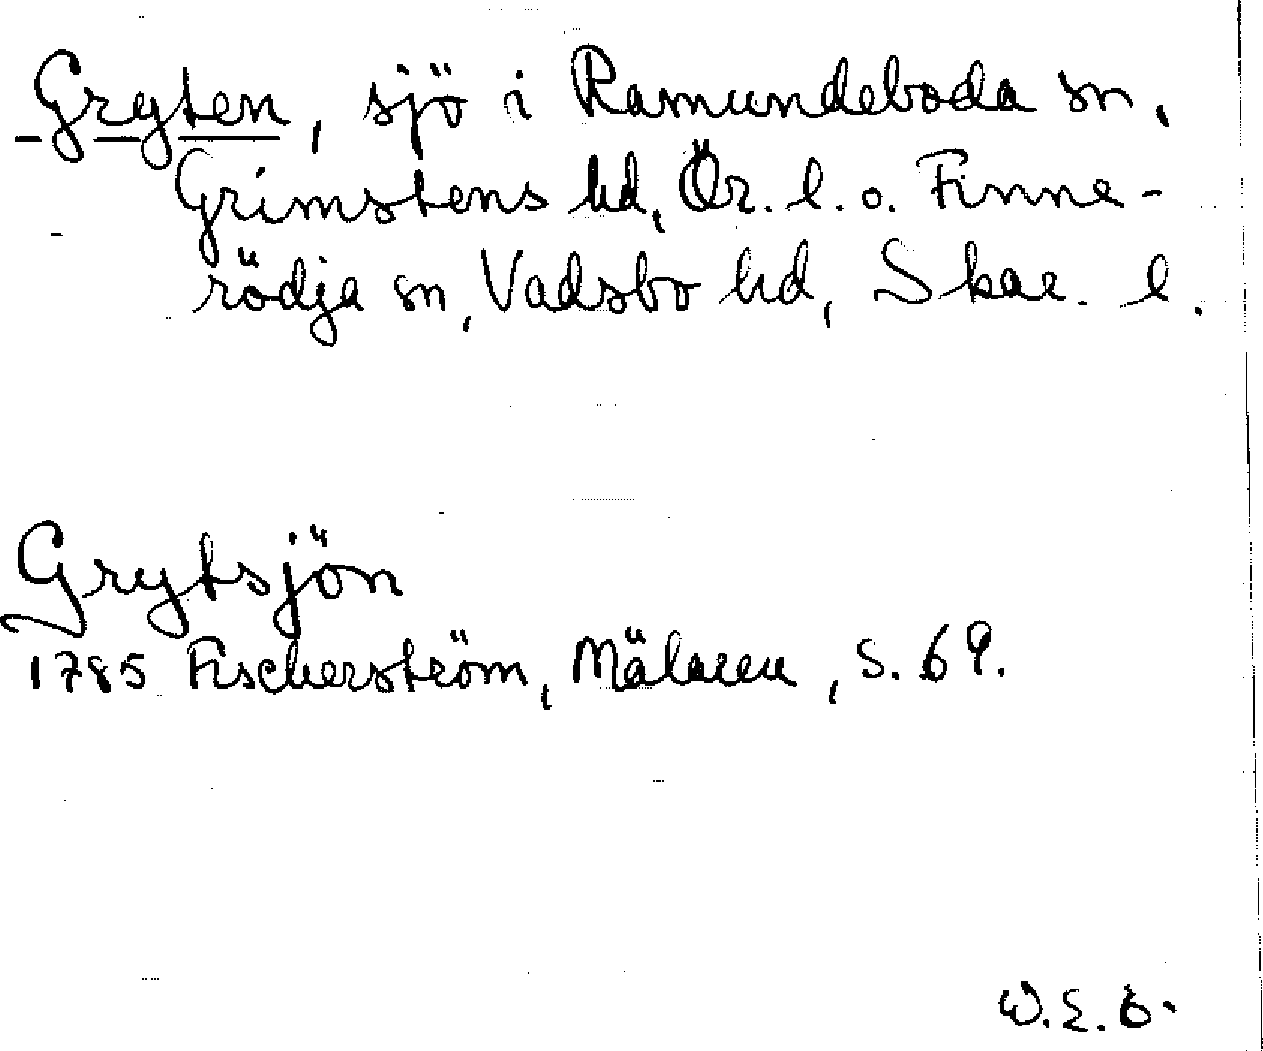 Gryten, sjö i Ramundeboda sn,
Grimstens hd, Ör. l. o. Finne-
rödja sn, Vadsbo hd, Skar. l.
Grytsjön
1785 Fischerström, Mälaren, s. 69.
W.E.